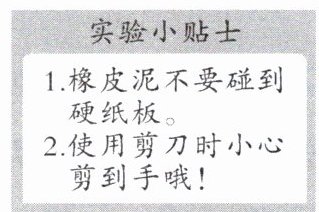 实验小贴士
1.橡皮泥不要碰到
硬纸板。
2.使用剪刀时小心
剪到手哦!